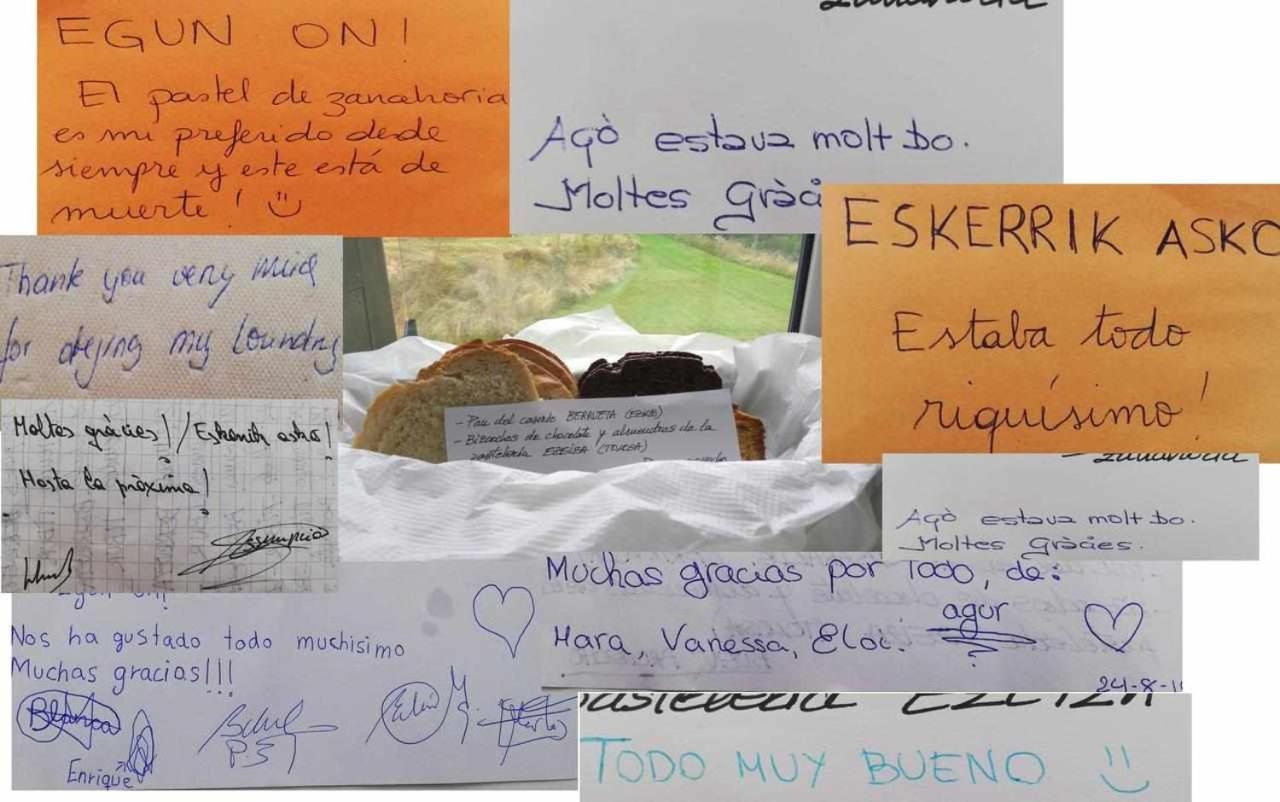 EGUN ON!
El pastel de zanahoria
es mi preferido desde
siempre y este está de
muerte! :)
zanahoria
Açò estava molt bo.
Moltes Gràci
ESKERRIK ASKO
Estaba todo
riquísimo!
Thank you very
for my
Moltes gràcies! / Eskerrik asko!
Hasta la pròxima!
- Pan del caserío BERRUETA
- Bizcochos de chocolate y almendras de la
pastelería
zanahoria
Açò estava molt bo.
Moltes Gràcies.
Egun on!
Nos ha gustado todo muchisimo
Muchas gracias!!!
Blanca
Enrique
Muchas gracias por Todo, de:
Mara, Vanessa, Eloi. agur
24-8-1
pastelería
TODO MUY BUENO :)